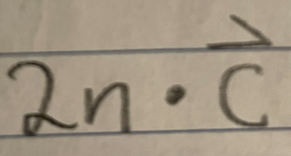 2n · C⃗